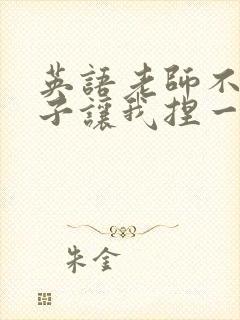 英語老師不
子讓我捏一
朱金